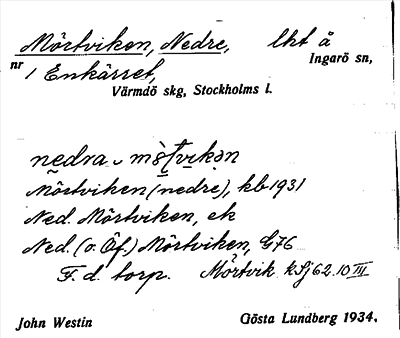 Mörtviken, Nedre, lht å
nr 1 Enkärret, Ingarö sn,
Värmdö skg, Stockholms l.
nedra
Mörtviken (nedre), kb 1931
Ned. Mörtviken, ek
Ned. (o. Öf.) Mörtviken, G76
F. d. torp. Mörtvik kSj 62.10 III
John Westin Gösta Lundberg 1934.